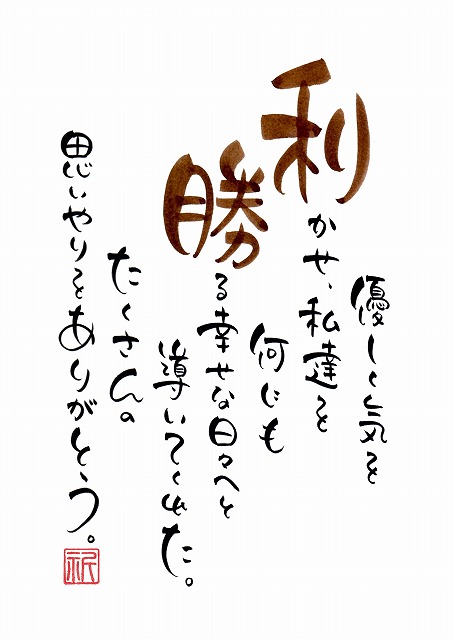 優しく気を
利かせ、私達を
何にも
勝る幸せな日々へと
導いてくれた。
たくさんの
思いやりをありがとう。